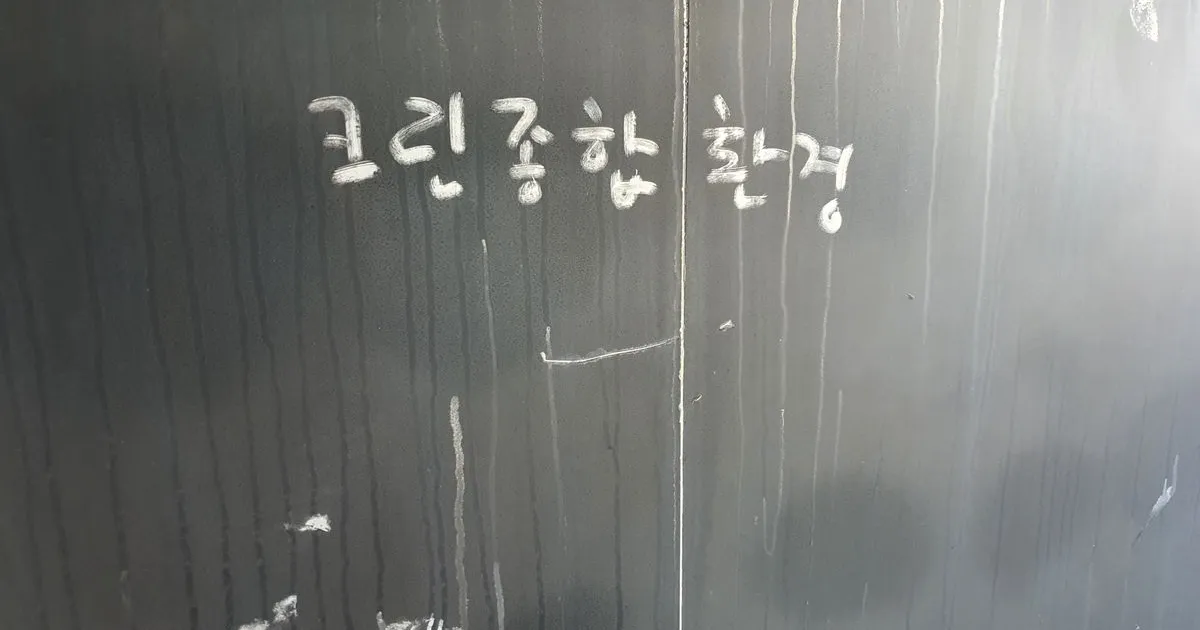 크린종합환경